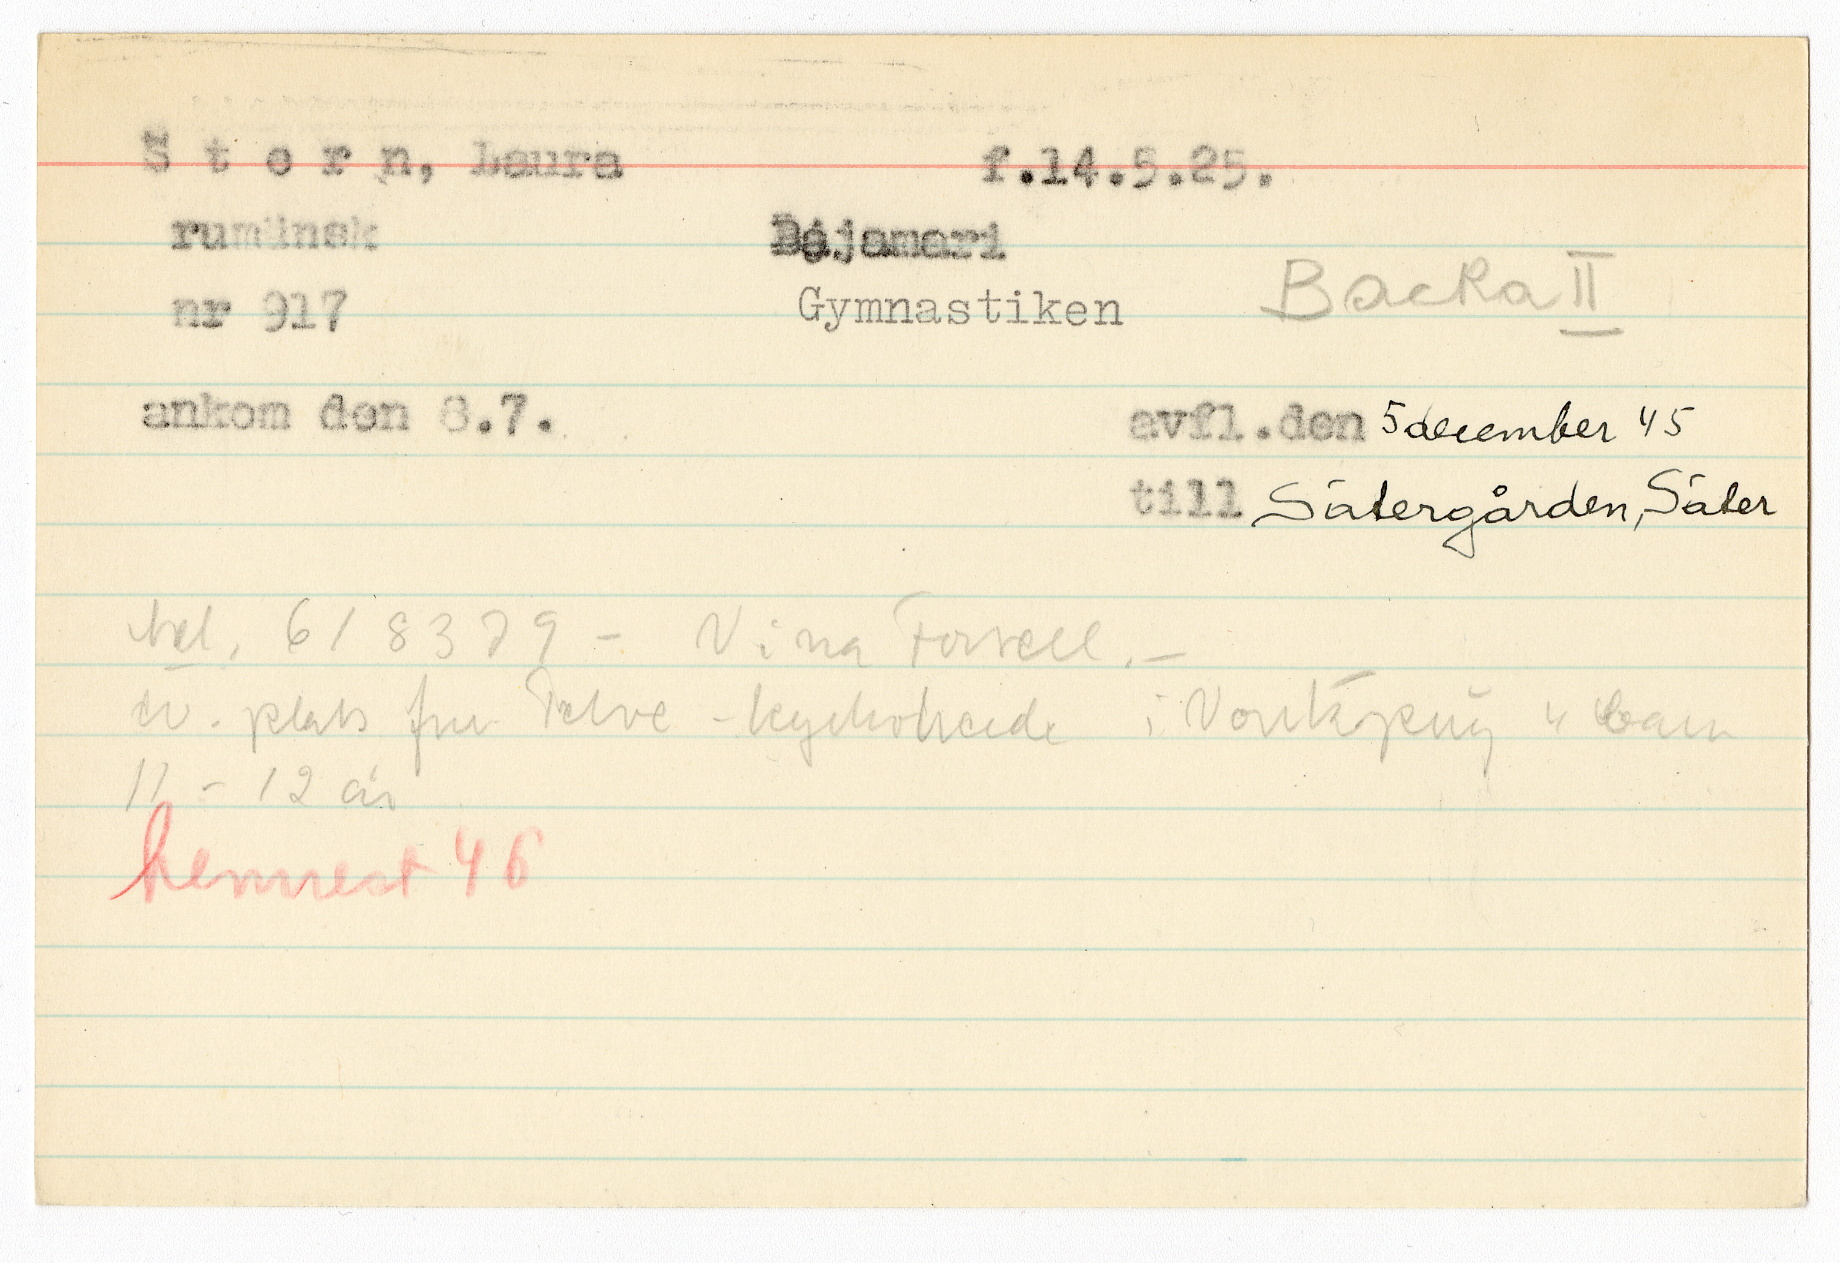 S t e r n, Laura f.14.5.25.
rumänsk Bájamari
nr 917 Gymnastiken Backa II
ankom den 8.7. avfl.den 5 december 45
till Sätergården, Säter
tel. 618379 - Vina
ev. plats fru i 4 barn
11 - 12 år
hemrest 46